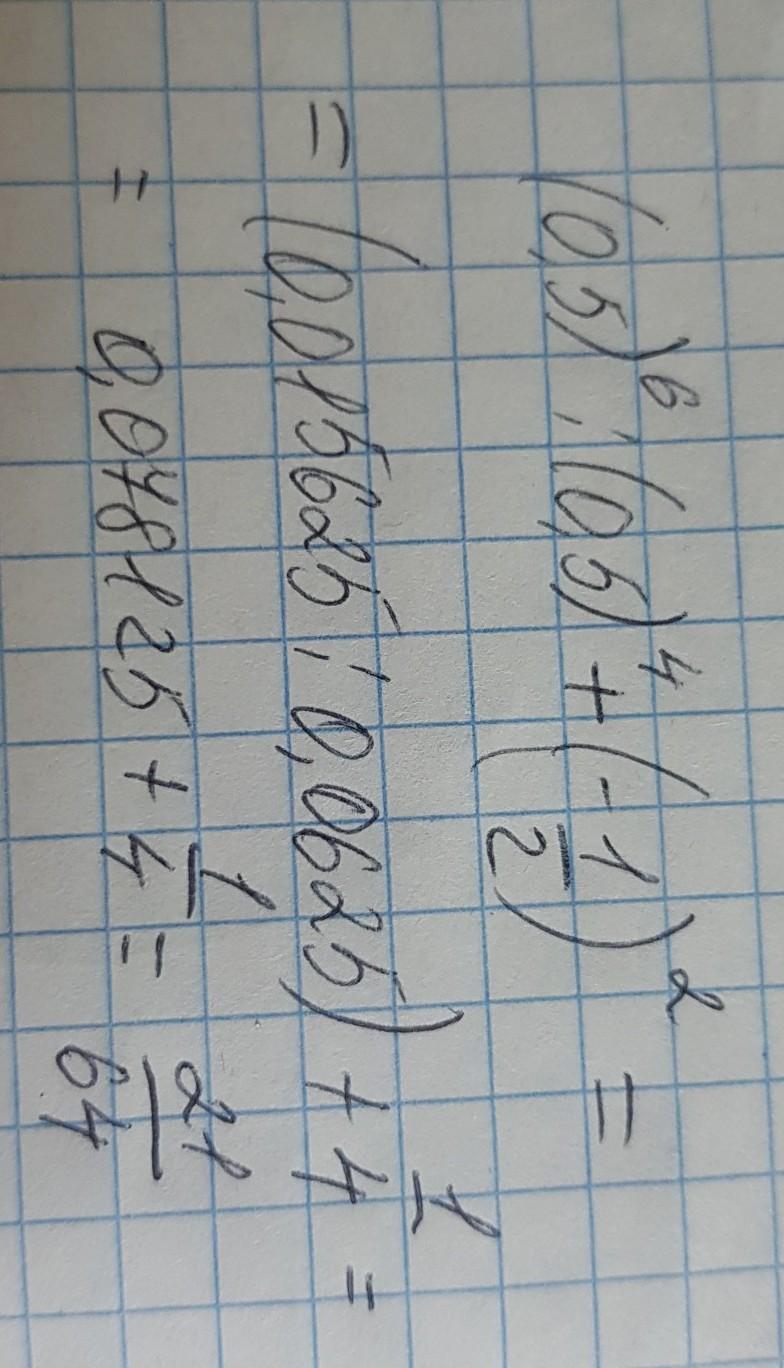 (0,5)⁶ : (0,5)⁴ + (-1/2)² =
= (0,015625 : 0,0625) + 1/4 =
= 0,078125 + 1/4 = 21/64